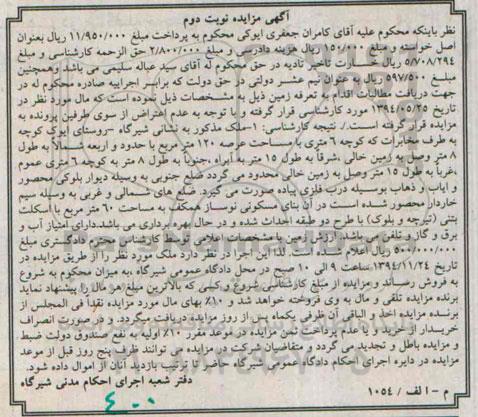 آگهی مزایده نوبت دوم
نظر باینکه محکوم علیه آقای کامران جعفری ایوکی محکوم به پرداخت مبلغ ۱۱/۹۵۰/۰۰۰ ریال بعنوان
اصل خواسته و مبلغ ۱۵۰/۰۰۰ ریال هزینه دادرسی و مبلغ ۲/۸۰۰/۰۰۰ حق الزحمه کارشناسی و مبلغ
۵/۷۰۸/۲۹۴ ریال خسارت تاخیر تادیه در حق محکوم له آقای سید عباله سلیمی می باشد وهمچنین
مبلغ ۵۹۷/۵۰۰ ریال به عنوان نیم عشر دولتی در حق دولت که برابر اجراییه صادره محکوم له در
جهت دریافت مطالبات اقدام به تعرفه زمین ذیل به مشخصات ذیل نموده است که مال مورد نظر در
تاریخ ۱۳۹۴/۰۵/۲۵ مورد کارشناسی قرار گرفته و با توجه به عدم اعتراض از سوی طرفین پرونده به
مزایده قرار گرفته است./. نتیجه کارشناسی: ۱-ملک مذکور به نشانی شیرگاه –روستای ایوک کوچه
به طرف مخابرات که کوچه ۶ متری با مساحت عرصه ۱۲۰ متر مربع با حدود و اربعه شمالاً به طول
۸ متر وصل به زمین خالی ،شرقاً به طول ۱۵ متر به آبراه ،جنوباً به طول ۸ متر به کوچه ۶ متری عموم
،غرباً به طول ۱۵ متر وصل به زمین خالی محدود می گردد ضلع جنوبی به وسیله دیوار بلوکی محصور
و ایاب و ذهاب بوسیله درب فلزی پیاده صورت می گیرد. ضلع های شمالی و غربی به وسیله سیم
خاردار محصور شده است در آن بنای مسکونی نوساز همکف به مساحت ۶۰ متر مربع با اسکلت
بتنی (تیرچه و بلوک) با طرح دو طبقه احداث شده و در حال بهره برداری می باشد.دارای امتیاز آب و
برق و گاز و تلفن می باشد. ارزش زمین با مشخصات اعلامی توسط کارشناس محترم دادگستری مبلغ
۵۰۰/۰۰۰/۰۰۰ ریال اعلام شده است. لذا این اجرا در نظر دارد ملک مورد نظر را از طریق مزایده در
تاریخ ۱۳۹۴/۱۱/۲۴ ساعت ۹ الی ۱۰ صبح در محل دادگاه عمومی شیرگاه ،به میزان محکوم به شروع
به فروش رساند و مزایده از مبلغ کارشناسی شروع و کسی که بالاترین مبلغ هر مال را پیشنهاد نماید
برنده مزایده تلقی و مال به وی فروخته خواهد شد و ۱۰٪ بهای مال مورد مزایده نقداً فی المجلس از
برنده مزایده اخذ و الباقی آن ظرفی یکماه پس از روز مزایده دریافت میگردد. و در صورت انصراف
خریدار از خرید و یا عدم پرداخت ثمن مزایده در موعد مقرر ۱۰٪ اولیه به نفع صندوق دولت ضبط
و مزایده باطل و تجدید می گردد و متقاضیان شرکت در مزایده می توانند ظرف پنج روز قبل از موعد
مزایده در دایره اجرای احکام دادگاه عمومی شیرگاه حاضر تا ترتیب بازدید آنان از اموال داده شود.
دفتر شعبه اجرای احکام مدنی شیرگاه
م – الف / ۱۰۵۴
۴۰۰